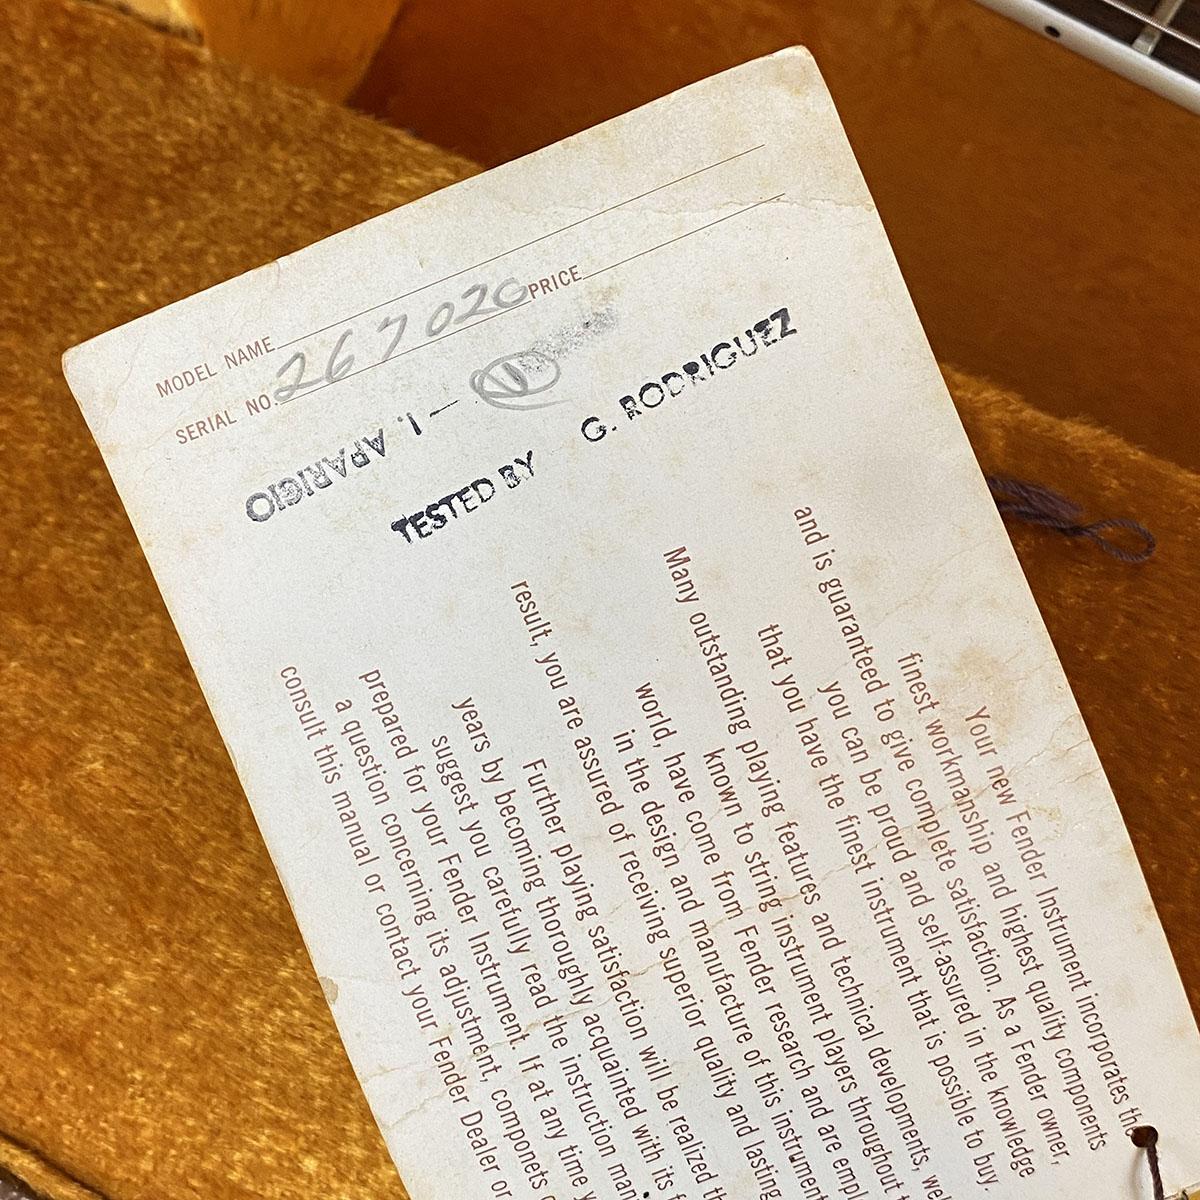 MODEL NAME
SERIAL NO. 267020 PRICE
I. APARICIO
TESTED BY G. RODRIGUEZ
Your new Fender Instrument incorporates th
finest workmanship and highest quality components
and is guaranteed to give complete satisfaction. As a Fender owner,
you can be proud and self-assured in the knowledge
that you have the finest instrument that is possible to buy
Many outstanding playing features and technical developments, wel
known to string instrument players throughout t
world, have come from Fender research and are empl
in the design and manufacture of this instrument
result, you are assured of receiving superior quality and lasting
Further playing satisfaction will be realized th
years by becoming thoroughly acquainted with its f
suggest you carefully read the instruction man
prepared for your Fender Instrument. If at any time y
a question concerning its adjustment, componets o
consult this manual or contact your Fender Dealer or